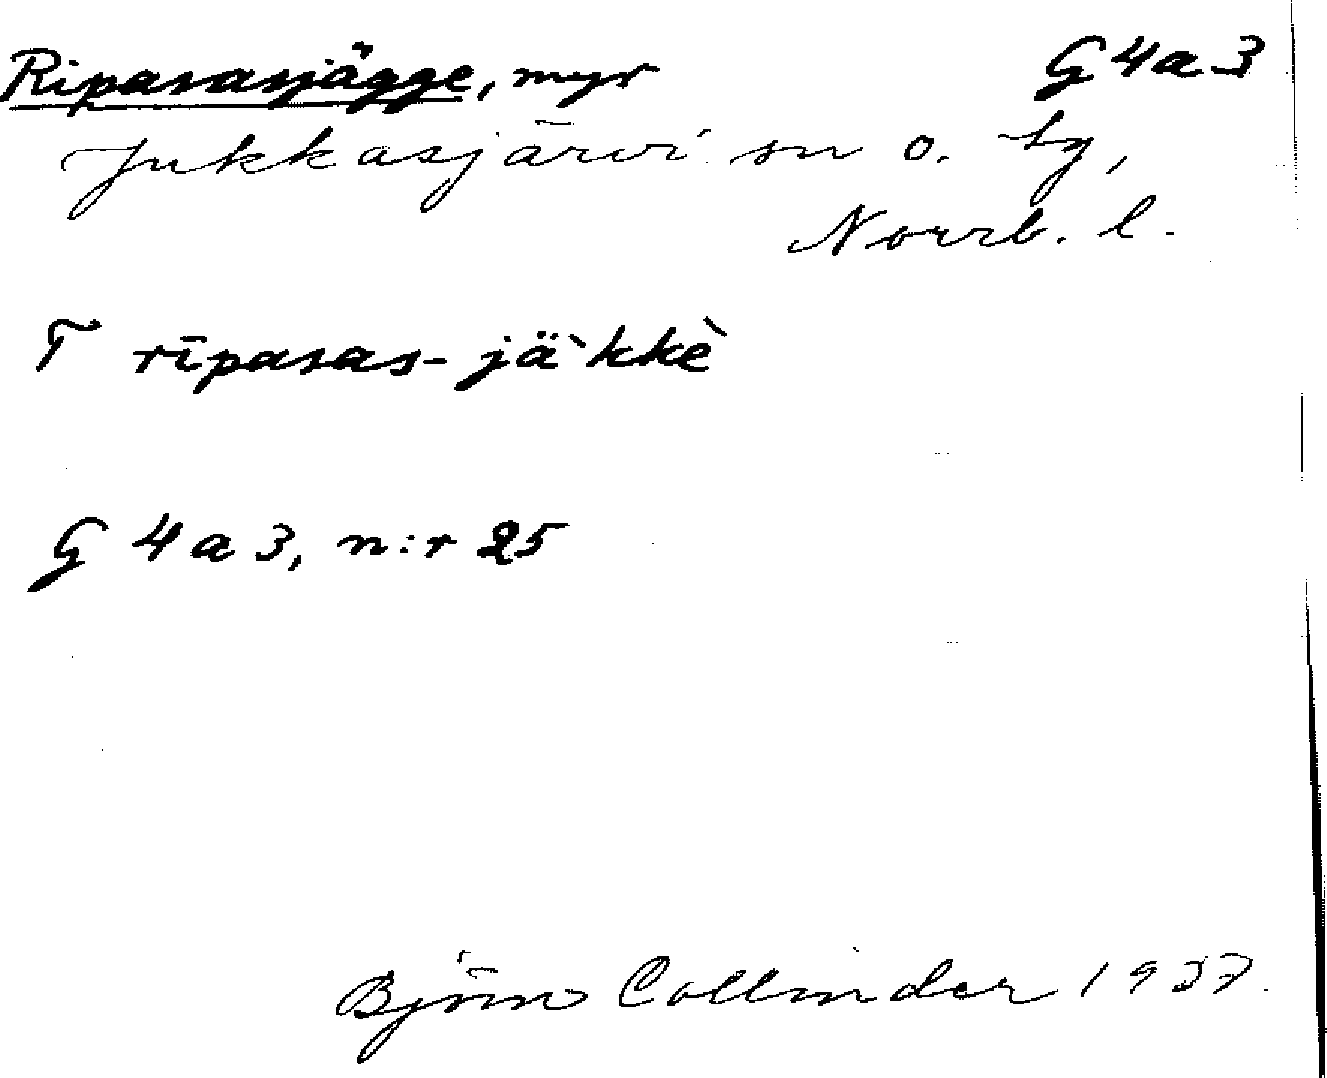 Ripasasjägge, myr G 4a 3
Jukkasjärvi sn o. by,
Norrb. l.
T rīpasas-jä`kkè
G 4 a 3, n:r 25
Björn Collinder 1937.